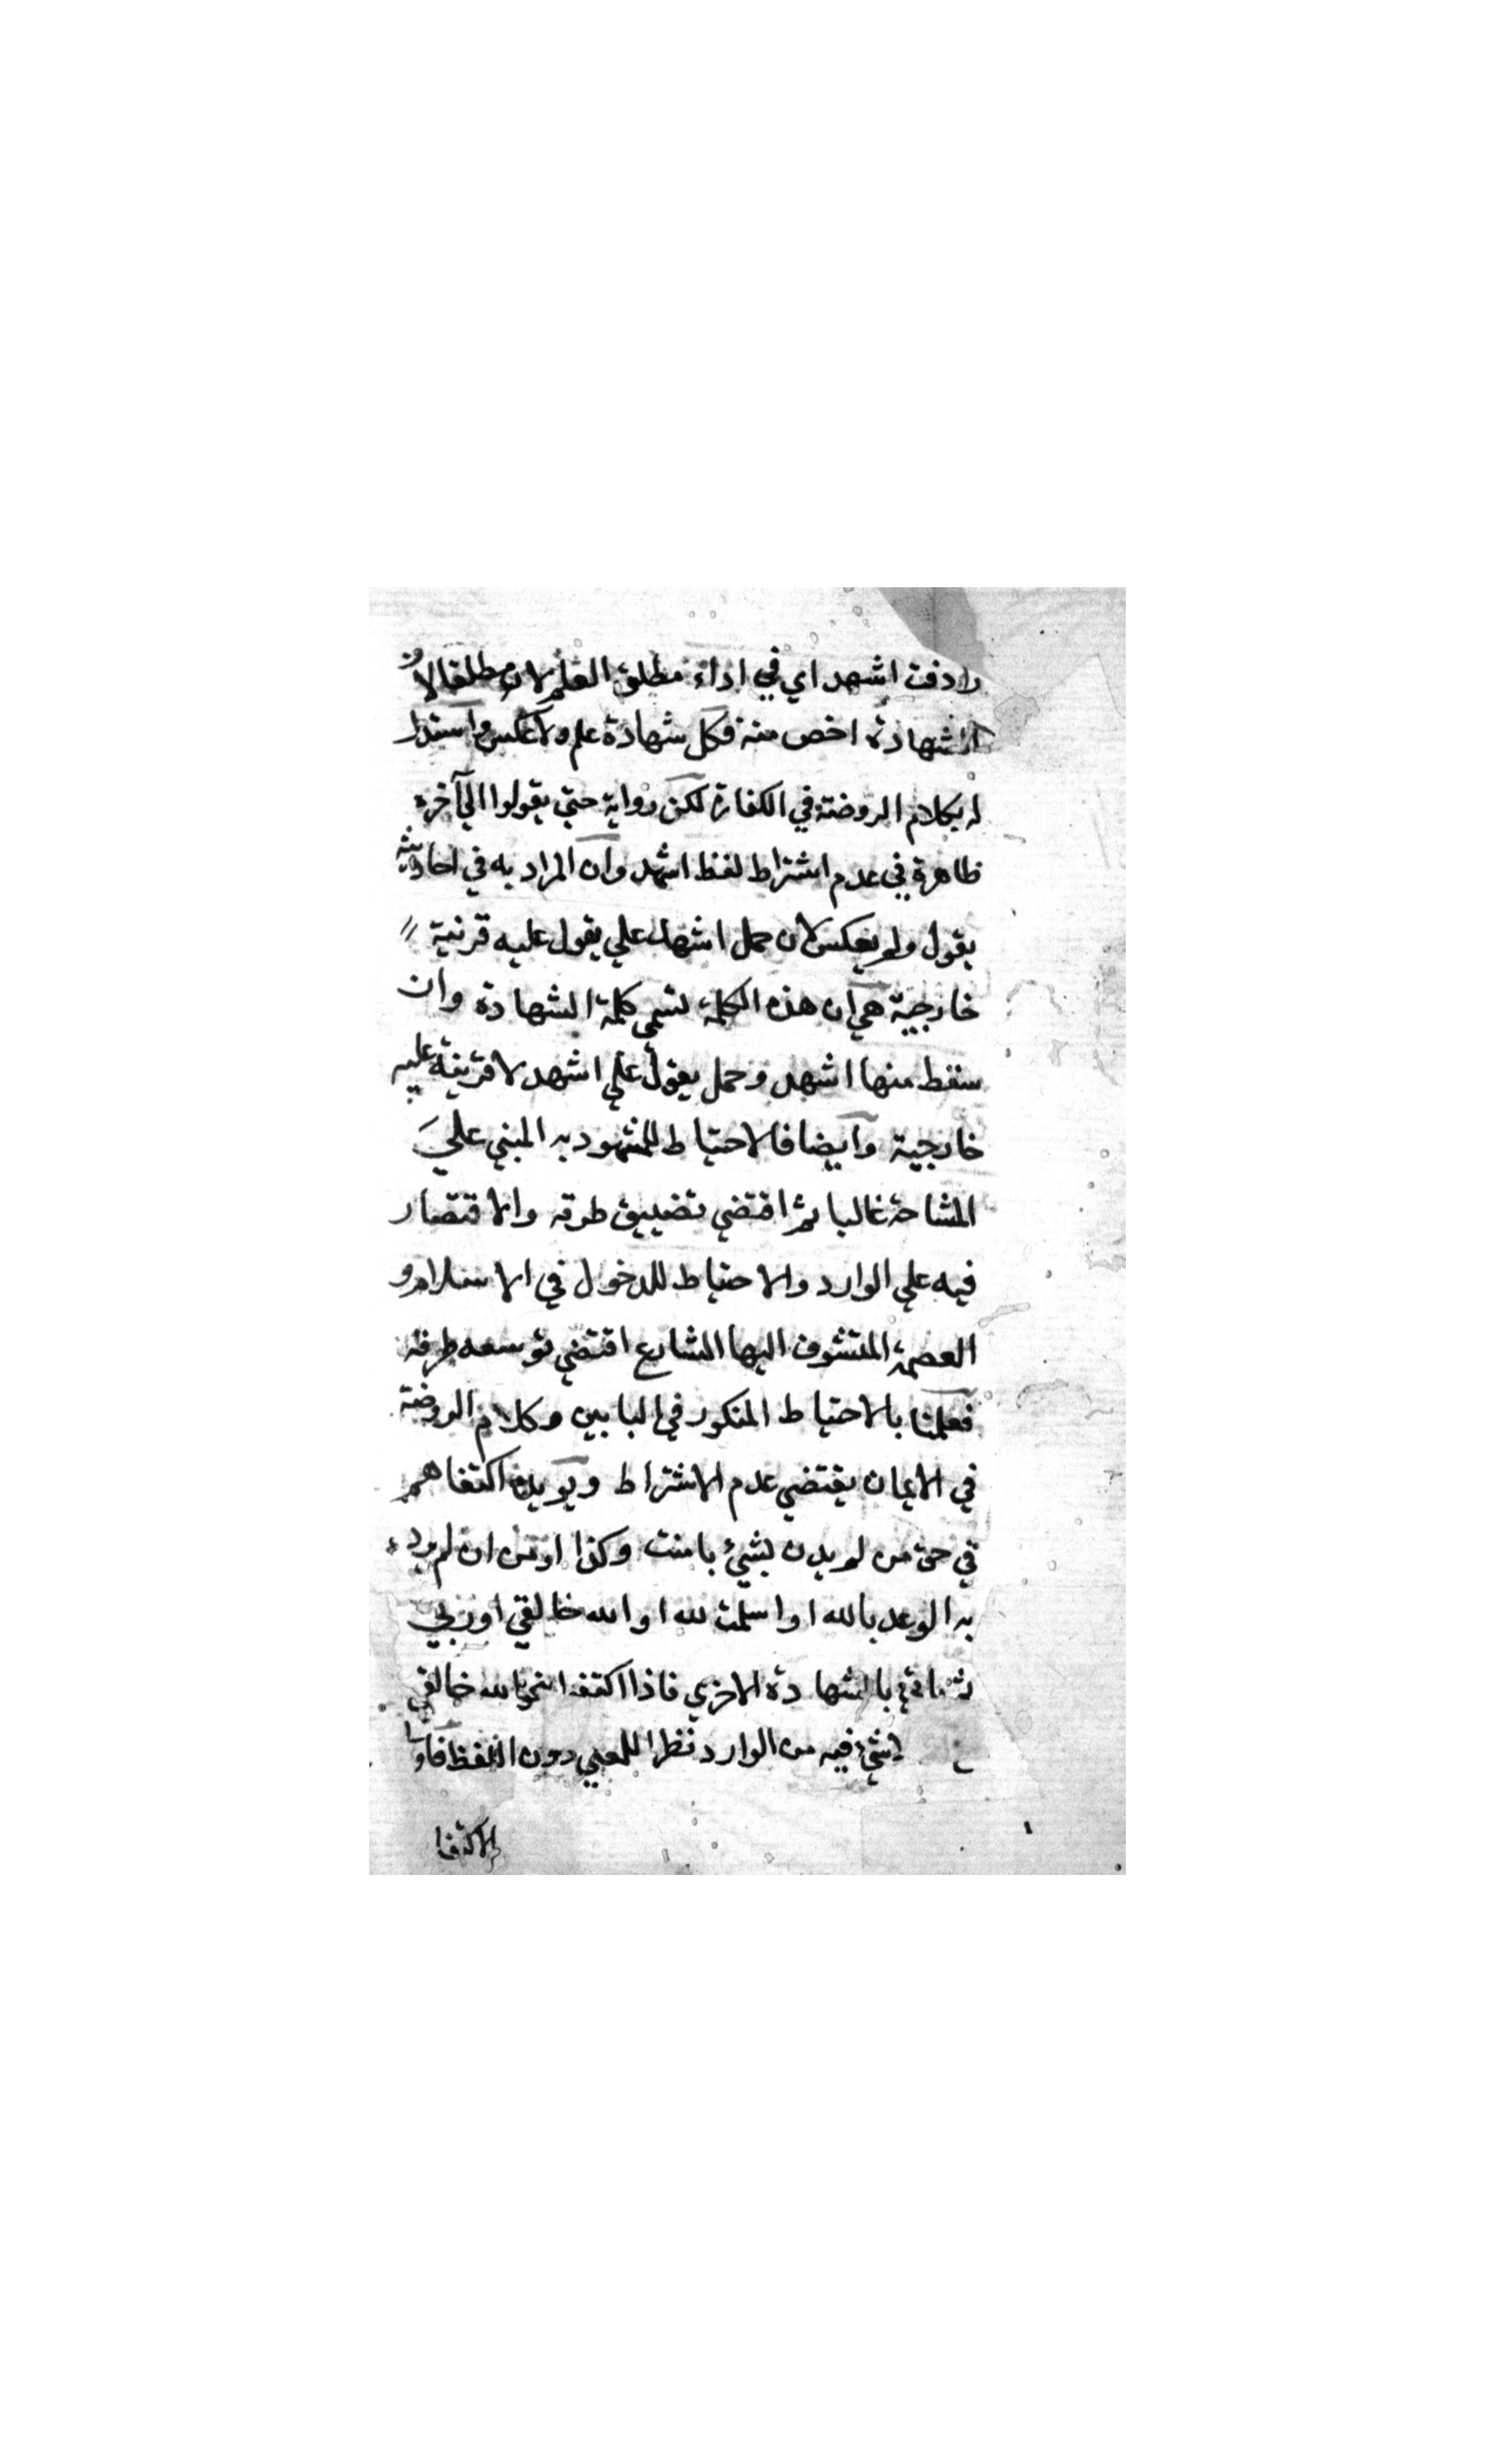 رادفت اشهد اي في اداء مطلق العلم لا مطلقا لان
الشهادة اخص منه فكل شهادة علم ولا عكس واستدل
له بكلام الروضة في الكفارة لكن رواية حتي يقولوا الي آخره
ظاهرة في عدم اشتراط لفظ اشهد وان المراد به في احاديثه
يقول ولم يعكس لان حمل اشهد علي يقول عليه قرنية
خارجية هي ان هذه الكلمة تسمي كلمة الشهادة وان
سقط منها اشهد وحمل يقول علي اشهد لا قرينة عليه
خارجية وايضا فالاحتياط للمشهود به المبني علي
المشاحة غالبا ثم اقتضي تضييق طرقه والاقتصار
فيه علي الوارد والاحتياط للدخول في الاسلام و
العصمة المتشوف اليها الشارع اقتضي توسعه طرقه
فعلمنا بالاحتياط المذكور في البابين وكلام الروضة
في الايمان يقتضي عدم الاشتراط ويويده اكتفاهم
في حق من لم يدن بشيئ بامنت وكذا اومن ان لم يرد
به الوعد بالله او اسلمت لله او الله خالقي او ربي
ثم ياتي بالشهادة الاخري فاذا اكتفوا بنحو الله خالقي
شيئ فيه من الوارد نظرا للمعني دون اللفظ فاولي
الاكتفا